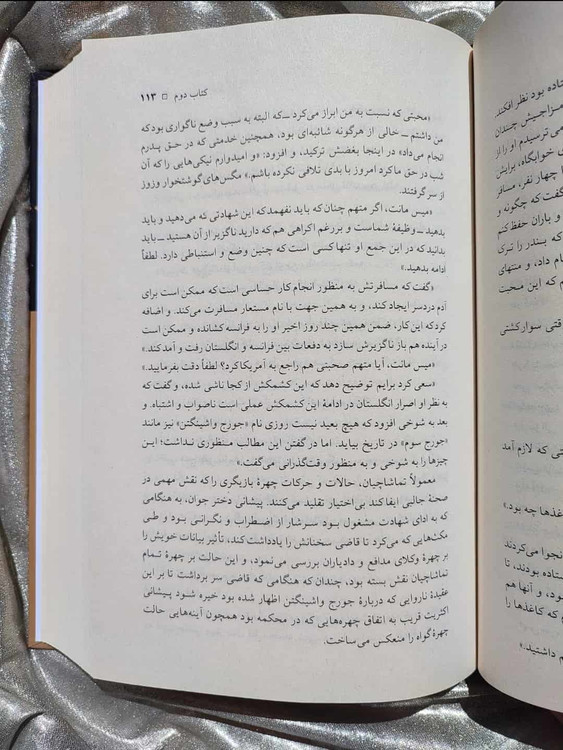 ستاده بود نظر افکند.
مزاجیش چندان
می ترسیدم او را از
ی خوابگاه، برایش
ا چهار نفر، مسافر
گفت که چگونه و
و باران حفظ کنم
که بندر را ترک
ام داد، و منتهای
م که این سخت
قتی سوار کشتی
تی که لازم آمد
غذها چه بود.»
نجوا می کردند
ستاده بودند، تا
ود، و آنها هم
که کاغذها را
م داشتید.»
کتاب دوم □ ۱۱۳
«محبتی که نسبت به من ابراز می‌کرد ــ که البته به سبب وضع ناگواری بود که
من داشتم ــ خالی از هرگونه شائبه‌ای بود، همچنین خدمتی که در حق پدرم
انجام می‌داد» در اینجا بغضش ترکید، و افزود: «و امیدوارم نیکی‌هایی را که آن
شب در حق ما کرد امروز با بدی تلافی نکرده باشم.» مگس‌های گوشتخوار وزوز
از سر گرفتند.
«میس مانت، اگر متهم چنان که باید نفهمد که این شهادتی که می‌دهید و باید
بدهید ــ وظیفهٔ شماست و بررغم اکراهی هم که دارید ناگزیر از آن هستید ــ باید
بدانید که در این جمع او تنها کسی است که چنین وضع و استنباطی دارد. لطفاً
ادامه بدهید.»
«گفت که مسافرتش به منظور انجام کار حساسی است که ممکن است برای
آدم دردسر ایجاد کند، و به همین جهت با نام مستعار مسافرت می‌کند. و اضافه
کرد که این کار، ضمن همین چند روز اخیر او را به فرانسه کشانده و ممکن است
در آینده هم باز ناگزیرش سازد به دفعات بین فرانسه و انگلستان رفت و آمد کند.»
«میس مانت، آیا متهم صحبتی هم راجع به آمریکا کرد؟ لطفاً دقت بفرمایید.»
«سعی کرد برایم توضیح دهد که این کشمکش از کجا ناشی شده، و گفت که
به نظر او اصرار انگلستان در ادامهٔ این کشمکش عملی است ناصواب و اشتباه. و
بعد به شوخی افزود که هیچ بعید نیست روزی نام «جورج واشینگتن» نیز مانند
«جورج سوم» در تاریخ بیاید. اما در گفتن این مطالب منظوری نداشت؛ این
چیزها را به شوخی و به منظور وقت‌گذرانی می‌گفت.»
معمولاً تماشاچیان، حالات و حرکات چهرهٔ بازیگری را که نقش مهمی در
صحنهٔ جالبی ایفا کند بی‌اختیار تقلید می‌کنند. پیشانی دختر جوان، به هنگامی
که به ادای شهادت مشغول بود سرشار از اضطراب و نگرانی بود و طی
مکث‌هایی که می‌کرد تا قاضی سخنانش را یادداشت کند، تأثیر بیانات خویش را
بر چهرهٔ وکلای مدافع و دادیاران بررسی می‌نمود، و این حالت بر چهرهٔ تمام
تماشاچیان نقش بسته بود، چندان که هنگامی که قاضی سر برداشت تا بر این
عقیدهٔ ناروایی که دربارهٔ جورج واشینگتن اظهار شده بود خیره شود پیشانی
اکثریت قریب به اتفاق چهره‌هایی که در محکمه بود همچون آینه‌هایی حالت
چهرهٔ گواه را منعکس می‌ساخت.